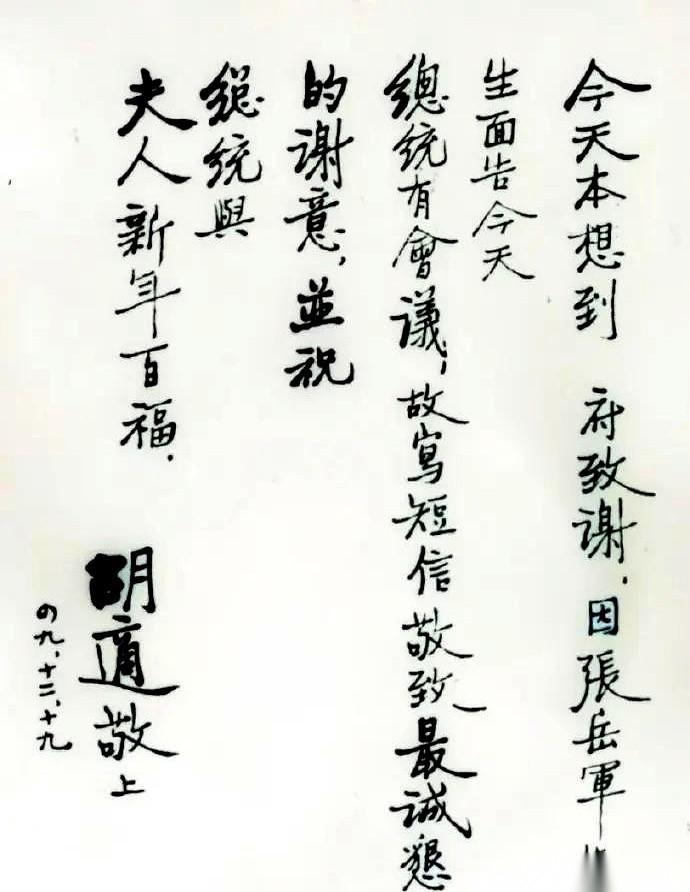 今天本想到　府致謝，因張岳軍
生面告今天
總統有會議，故寫短信敬致最誠懇
的謝意，並祝
總統與
夫人新年百福．
胡適敬上
四九、十二、十九